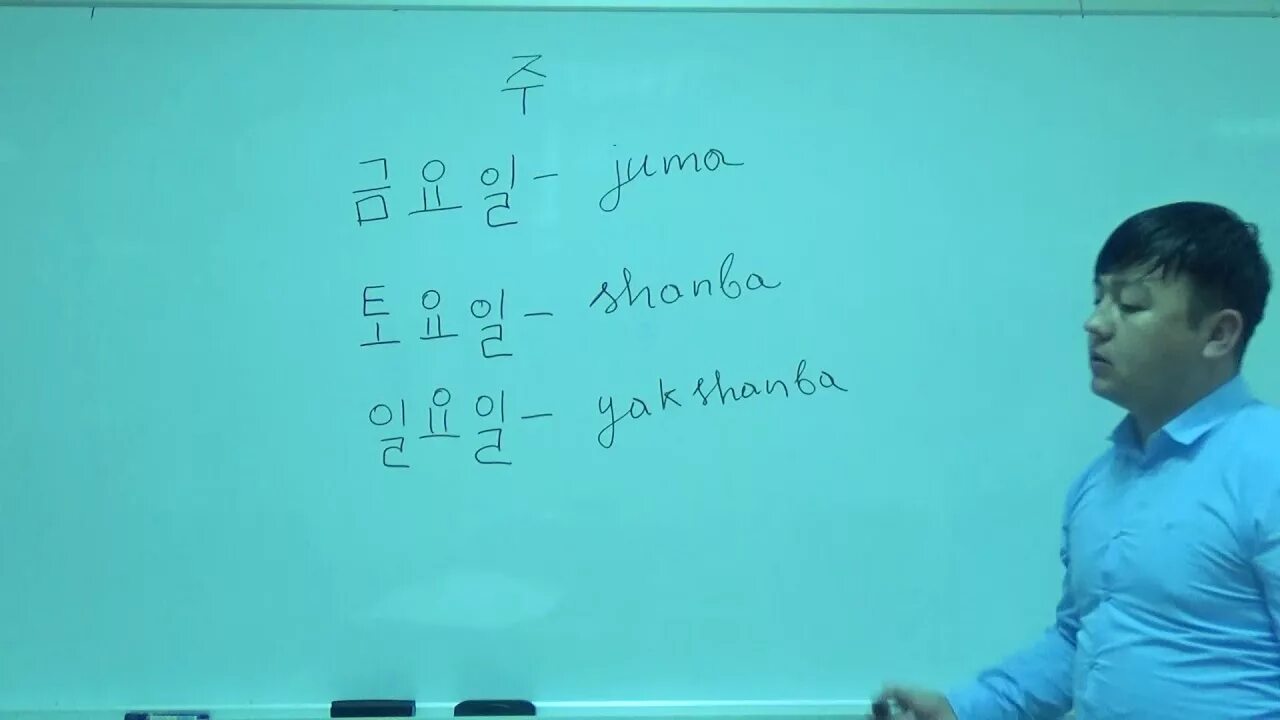 주
금요일 - juma
토요일 - shanba
일요일 - yakshanba